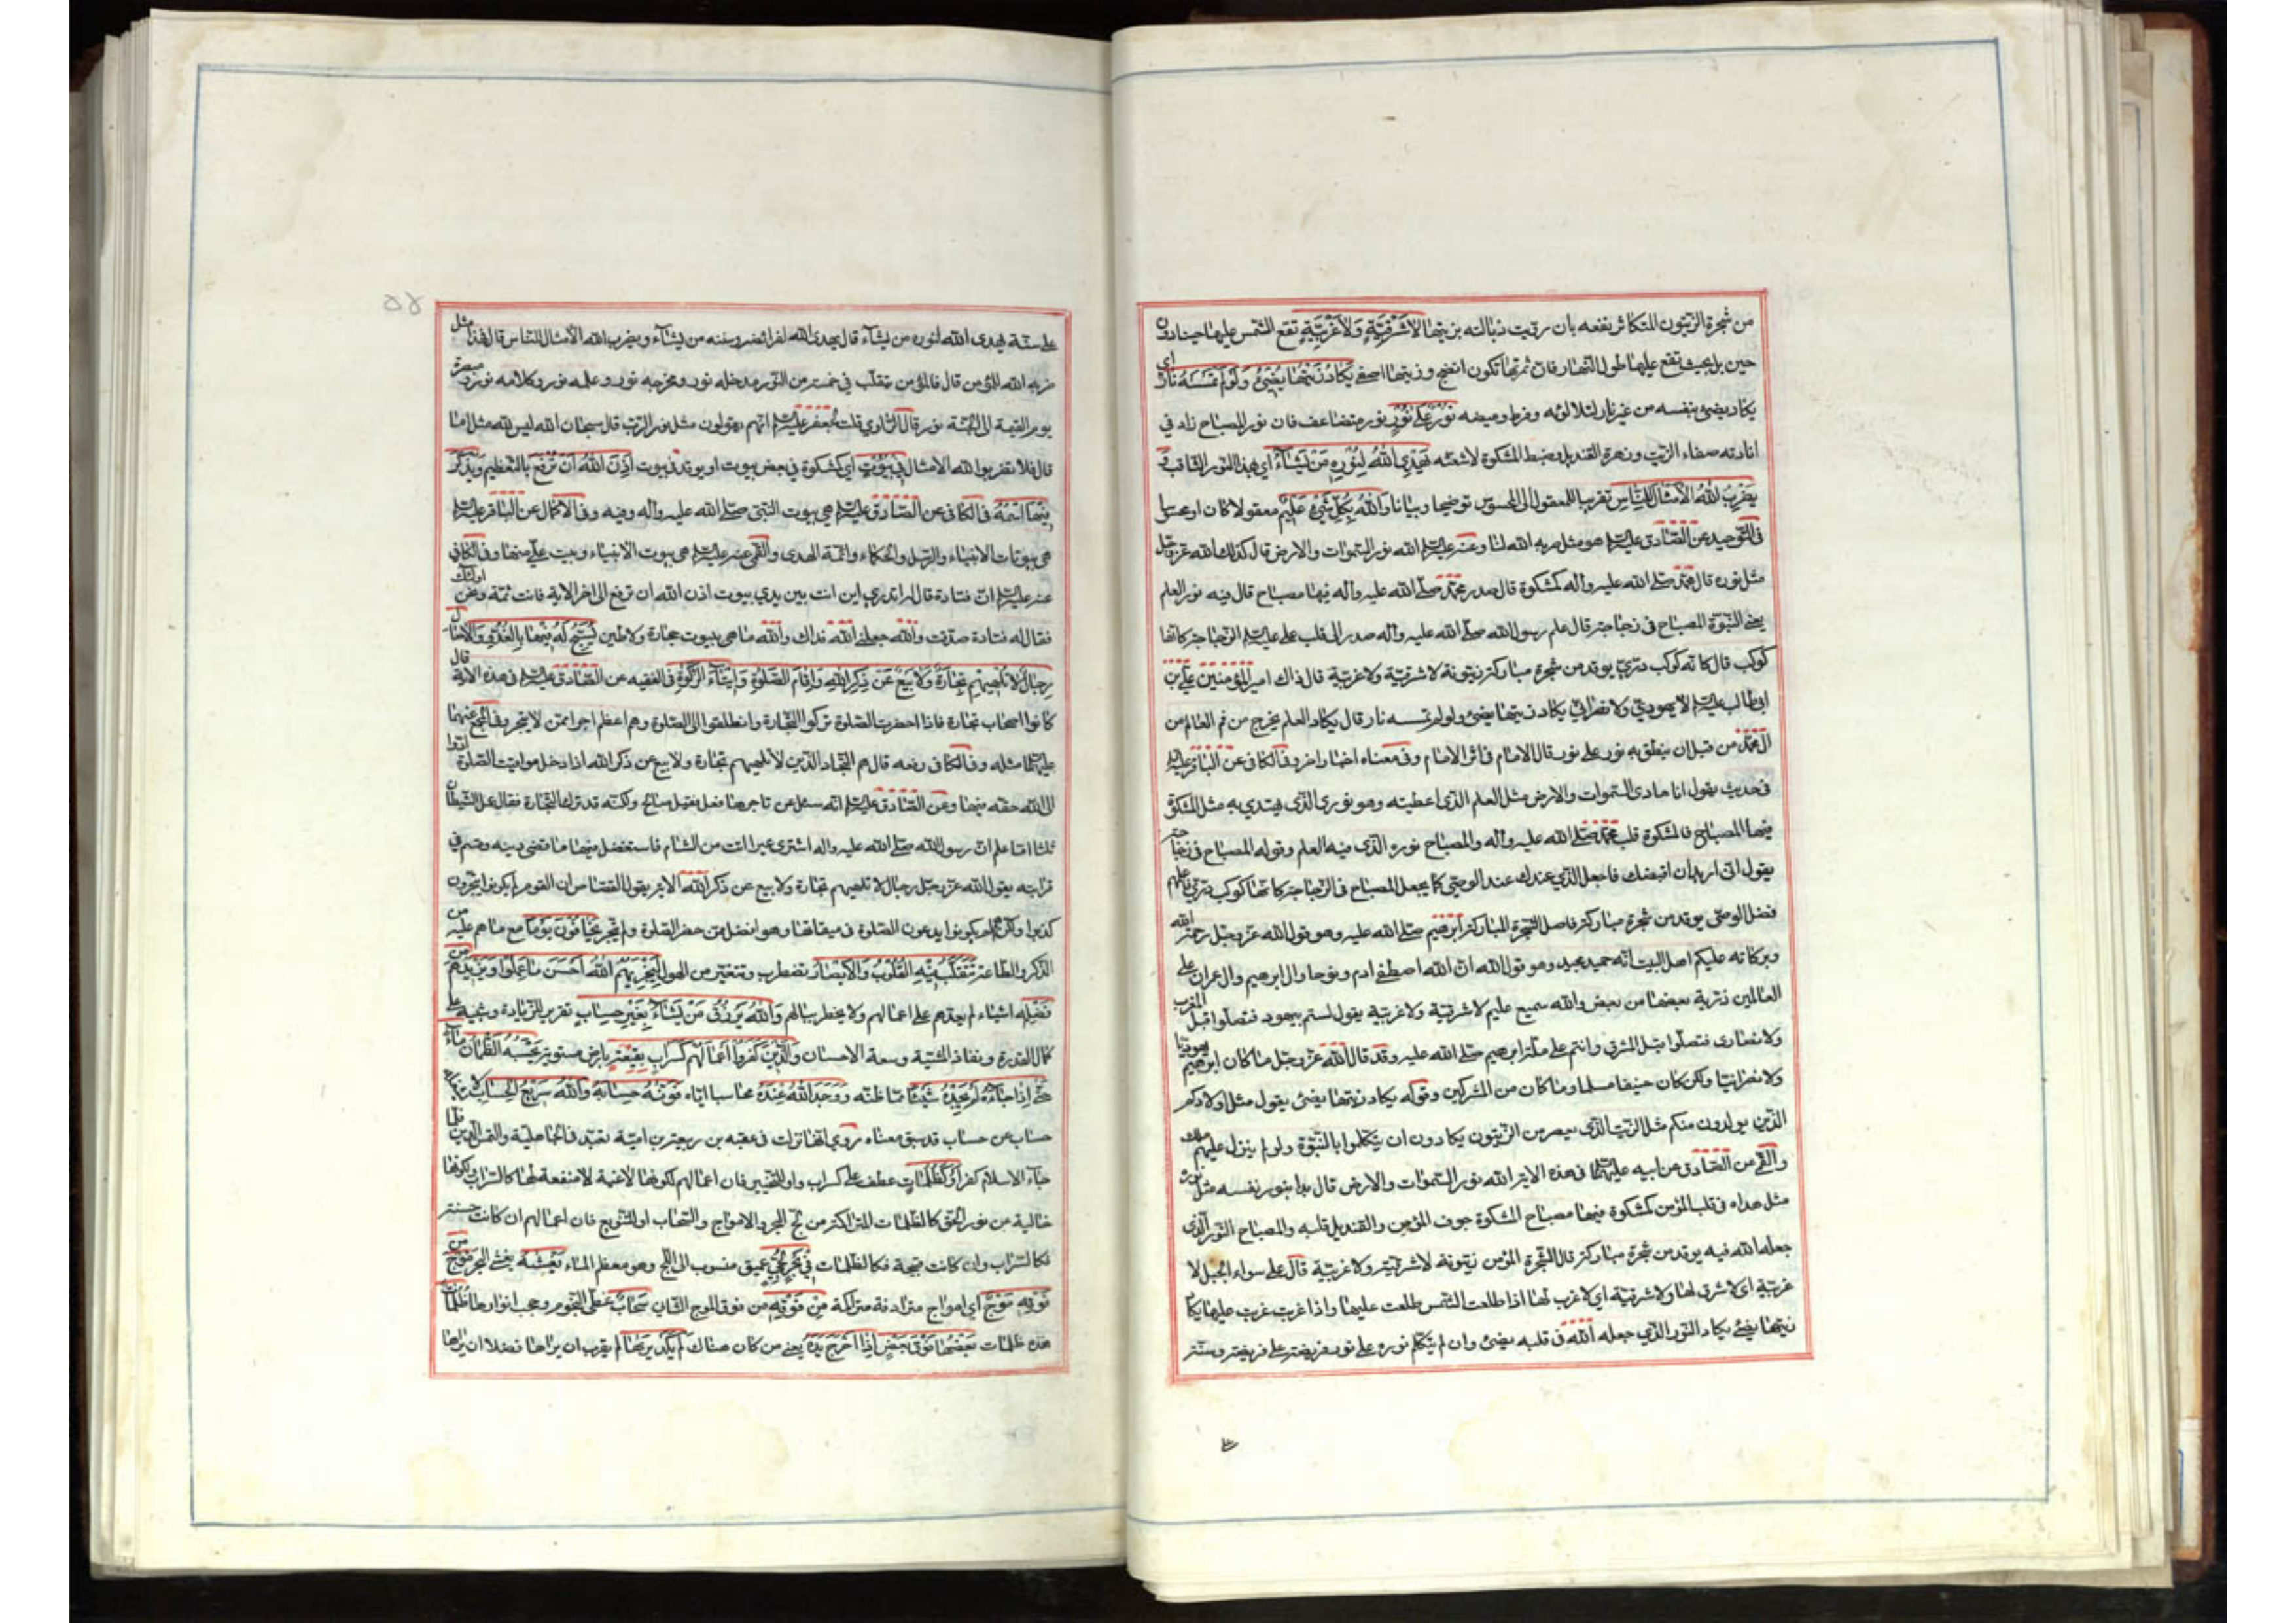 من شجرة الزيتون المتكاثر نفعه بان رويت ذبالته بزيتها لا شرقية ولا غربية تقع الشمس عليها حينا دون
حين بل بحيث تقع عليها طول النهار فان ثمرتها تكون انضج وزيتها اصفى يكاد زيتها يضئ ولو لم تمسسه نار اى
يكاد يضئ بنفسه من غير نار لتلألؤه وفرط وميضه نور على نور نور متضاعف فان نور المصباح زاد في
انارته صفاء الزيت وزهرة القنديل وضبط المشكوة لاشعته يهدى الله لنوره من يشاء اي لهذا النور الثاقب و
يضرب الله الامثال للناس تقريبا للمعقول الى المحسوس توضيحا وبيانا والله بكل شئ عليم معقولا كان او محسوسا
في التوحيد عن الصادق عليه السلم هو مثل ضربه الله لنا وعنه عليه السلم الله نور السموات والارض قال كذلك الله عز وجل
مثل نوره قال محمد صلى الله عليه وآله كمشكوة قال صدر محمد صلى الله عليه وآله فيها مصباح قال فيه نور العلم
يعنى النبوة المصباح فى زجاجة قال علم رسول الله صلى الله عليه وآله صدر الى قلب على عليه السلم الزجاجة كانها
كوكب قال كانه كوكب درى يوقد من شجرة مباركة زيتونة لا شرقية ولا غربية قال ذاك امير المؤمنين على بن
ابى طالب عليه السلم لا يهودى ولا نصرانى يكاد زيتها يضئ ولو لم تمسسه نار قال يكاد العلم يخرج من فم العالم من
آل محمد من قبل ان ينطق به نور على نور قال الامام في اثر الامام وفى معناه اخبار اخر وفى الكافى عن الباقر عليه السلم
فى حديث يقول انا هادى السموات والارض مثل العلم الذى اعطيته وهو نورى الذى يهتدى به مثل المشكوة
فيها المصباح فالمشكوة قلب محمد صلى الله عليه وآله والمصباح نوره الذى فيه العلم وقوله المصباح فى زجاجة
يقول انى اريد ان اقبضك فاجعل الذى عندك عند الوصى كما يجعل المصباح فى الزجاجة كانها كوكب درى فاعلم
فضل الوصى يوقد من شجرة مباركة فاصل الشجرة المباركة ابرهيم صلى الله عليه وهو قول الله عز وجل رحمة الله
وبركاته عليكم اهل البيت انه حميد مجيد وهو قول الله ان الله اصطفى ادم ونوحا وال ابرهيم وال عمران على
العالمين ذرية بعضها من بعض والله سميع عليم لا شرقية ولا غربية يقول لستم بيهود فتصلوا قبل المغرب
ولا نصارى فتصلوا قبل المشرق وانتم على ملة ابرهيم صلى الله عليه وقد قال الله عز وجل ما كان ابرهيم يهوديا
ولا نصرانيا ولكن كان حنيفا مسلما وما كان من المشركين وقوله يكاد زيتها يضئ يقول مثل اولادكم
الذين يولدون منكم مثل الزيت الذى يعصر من الزيتون يكادون ان يتكلموا بالنبوة ولو لم ينزل عليهم ملك
والقمى عن الصادق عن ابيه عليهما السلم فى هذه الاية الله نور السموات والارض قال بدا بنور نفسه مثل نوره
مثل هداه فى قلب المؤمن كمشكوة فيها مصباح المشكوة جوف المؤمن والقنديل قلبه والمصباح النور الذى
جعله الله فيه يوقد من شجرة مباركة قال الشجرة المؤمن زيتونة لا شرقية ولا غربية قال على سواء الجبل لا
غربية اى لا شرق لها ولا شرقية اى لا غرب لها اذا طلعت الشمس طلعت عليها واذا غربت غربت عليها يكاد
زيتها يضئ يكاد النور الذى جعله الله فى قلبه يضئ وان لم يتكلم نور على نور فريضة على فريضة وسنة
على سنة يهدى الله لنوره من يشآء قال يهدى الله لفرائضه وسننه من يشآء ويضرب الله الامثال للناس قال فهذا مثل
ضربه الله للمؤمن قال فالمؤمن يتقلب فى خمسة من النور مدخله نور ومخرجه نور وعلمه نور وكلامه نور ومصيره
يوم القيمة الى الجنة نور قال الراوى قلت لجعفر عليه السلم انهم يقولون مثل نور الرب قال سبحان الله ليس لله مثل اما
قال فلا تضربوا لله الامثال فى بيوت اى كمشكوة فى بعض بيوت او يوقد فى بيوت اذن الله ان ترفع بالتعظيم ويذكر
فيها اسمه فى الكافى عن الصادق عليه السلم هى بيوت النبى صلى الله عليه وآله وفيه وفى الاكمال عن الباقر عليه السلم
هى بيوتات الانبياء والرسل والحكماء وائمة الهدى والقمى عنه عليه السلم هى بيوت الانبياء وبيت على منها وفى الكافى
عنه عليه السلم ان قتادة قال له اتدرى اين انت بين يدى بيوت اذن الله ان ترفع الى اخر الاية فانت ثمة ونحن اولئك
فقال له قتادة صدقت والله جعلنى الله فداك والله ما هى بيوت حجارة ولا طين يسبح له فيها بالغدو والاصال
رجال لا تلهيهم تجارة ولا بيع عن ذكر الله واقام الصلوة وايتاء الزكوة فى الفقيه عن الصادق عليه السلم فى هذه الاية قال
كانوا اصحاب تجارة فاذا حضرت الصلوة تركوا التجارة وانطلقوا الى الصلوة وهم اعظم اجرا ممن لا يتجر وفى المجمع عنهما
عليهما السلم مثله وفى الكافى رفعه قال هم التجار الذين لا تلهيهم تجارة ولا بيع عن ذكر الله اذا دخل مواقيت الصلوة ادوا
الى الله حقه فيها وعن الصادق عليه السلم انه سئل عن تاجر ما فعل فقيل صالح ولكنه قد ترك التجارة فقال عمل الشيطان
ثلثا اما علم ان رسول الله صلى الله عليه وآله اشترى عيرا اتت من الشام فاستفضل فيها ما قضى دينه وقسم فى
قرابته يقول الله عز وجل رجال لا تلهيهم تجارة ولا بيع عن ذكر الله الاية يقول القصاص ان القوم لم يكونوا يتجرون
كذبوا ولكنهم لم يكونوا يدعون الصلوة فى ميقاتها وهو افضل ممن حضر الصلوة ولم يتجر يخافون يوما مع ما هم عليه من
الذكر والطاعة تتقلب فيه القلوب والابصار تضطرب وتتغير من الهول ليجزيهم الله احسن ما عملوا ويزيدهم من
فضله اشياء لم يعدهم على اعمالهم ولا يخطر ببالهم والله يرزق من يشاء بغير حساب تقرير للزيادة وتنبيه على
كمال القدرة ونفاذ المشية وسعة الاحسان والذين كفروا اعمالهم كسراب بقيعة بارض مستوية يحسبه الظمآن ماء
حتى اذا جاءه لم يجده شيئا مما ظنه ووجد الله عنده محاسبا اياه فوفيه حسابه والله سريع الحساب لا يشغله
حساب عن حساب قد سبق معناه روى انها نزلت فى عتبه بن ربيعة بن امية تعبد فى الجاهلية والتمس الدين فلما
جآء الاسلام كفر او كظلمات عطف على كسراب واو للتخيير فان اعمالهم لكونها لاغية لا منفعة لها كالسراب ولكونها
خالية عن نور الحق كالظلمات المتراكمة من لج البحر والامواج والسحاب او للتنويع فان اعمالهم ان كانت حسنة
فكالسراب وان كانت قبيحة فكالظلمات فى بحر لجى عميق منسوب الى اللج وهو معظم الماء يغشيه يغشى البحر موج من
فوقه موج اى امواج مترادفة متراكمة من فوقه من فوق الموج الثانى سحاب غطى النجوم وحجب انوارها ظلمات
هذه ظلمات بعضها فوق بعض اذا اخرج يده يعنى من كان هناك لم يكد يريها لم يقرب ان يراها فضلا ان يراها